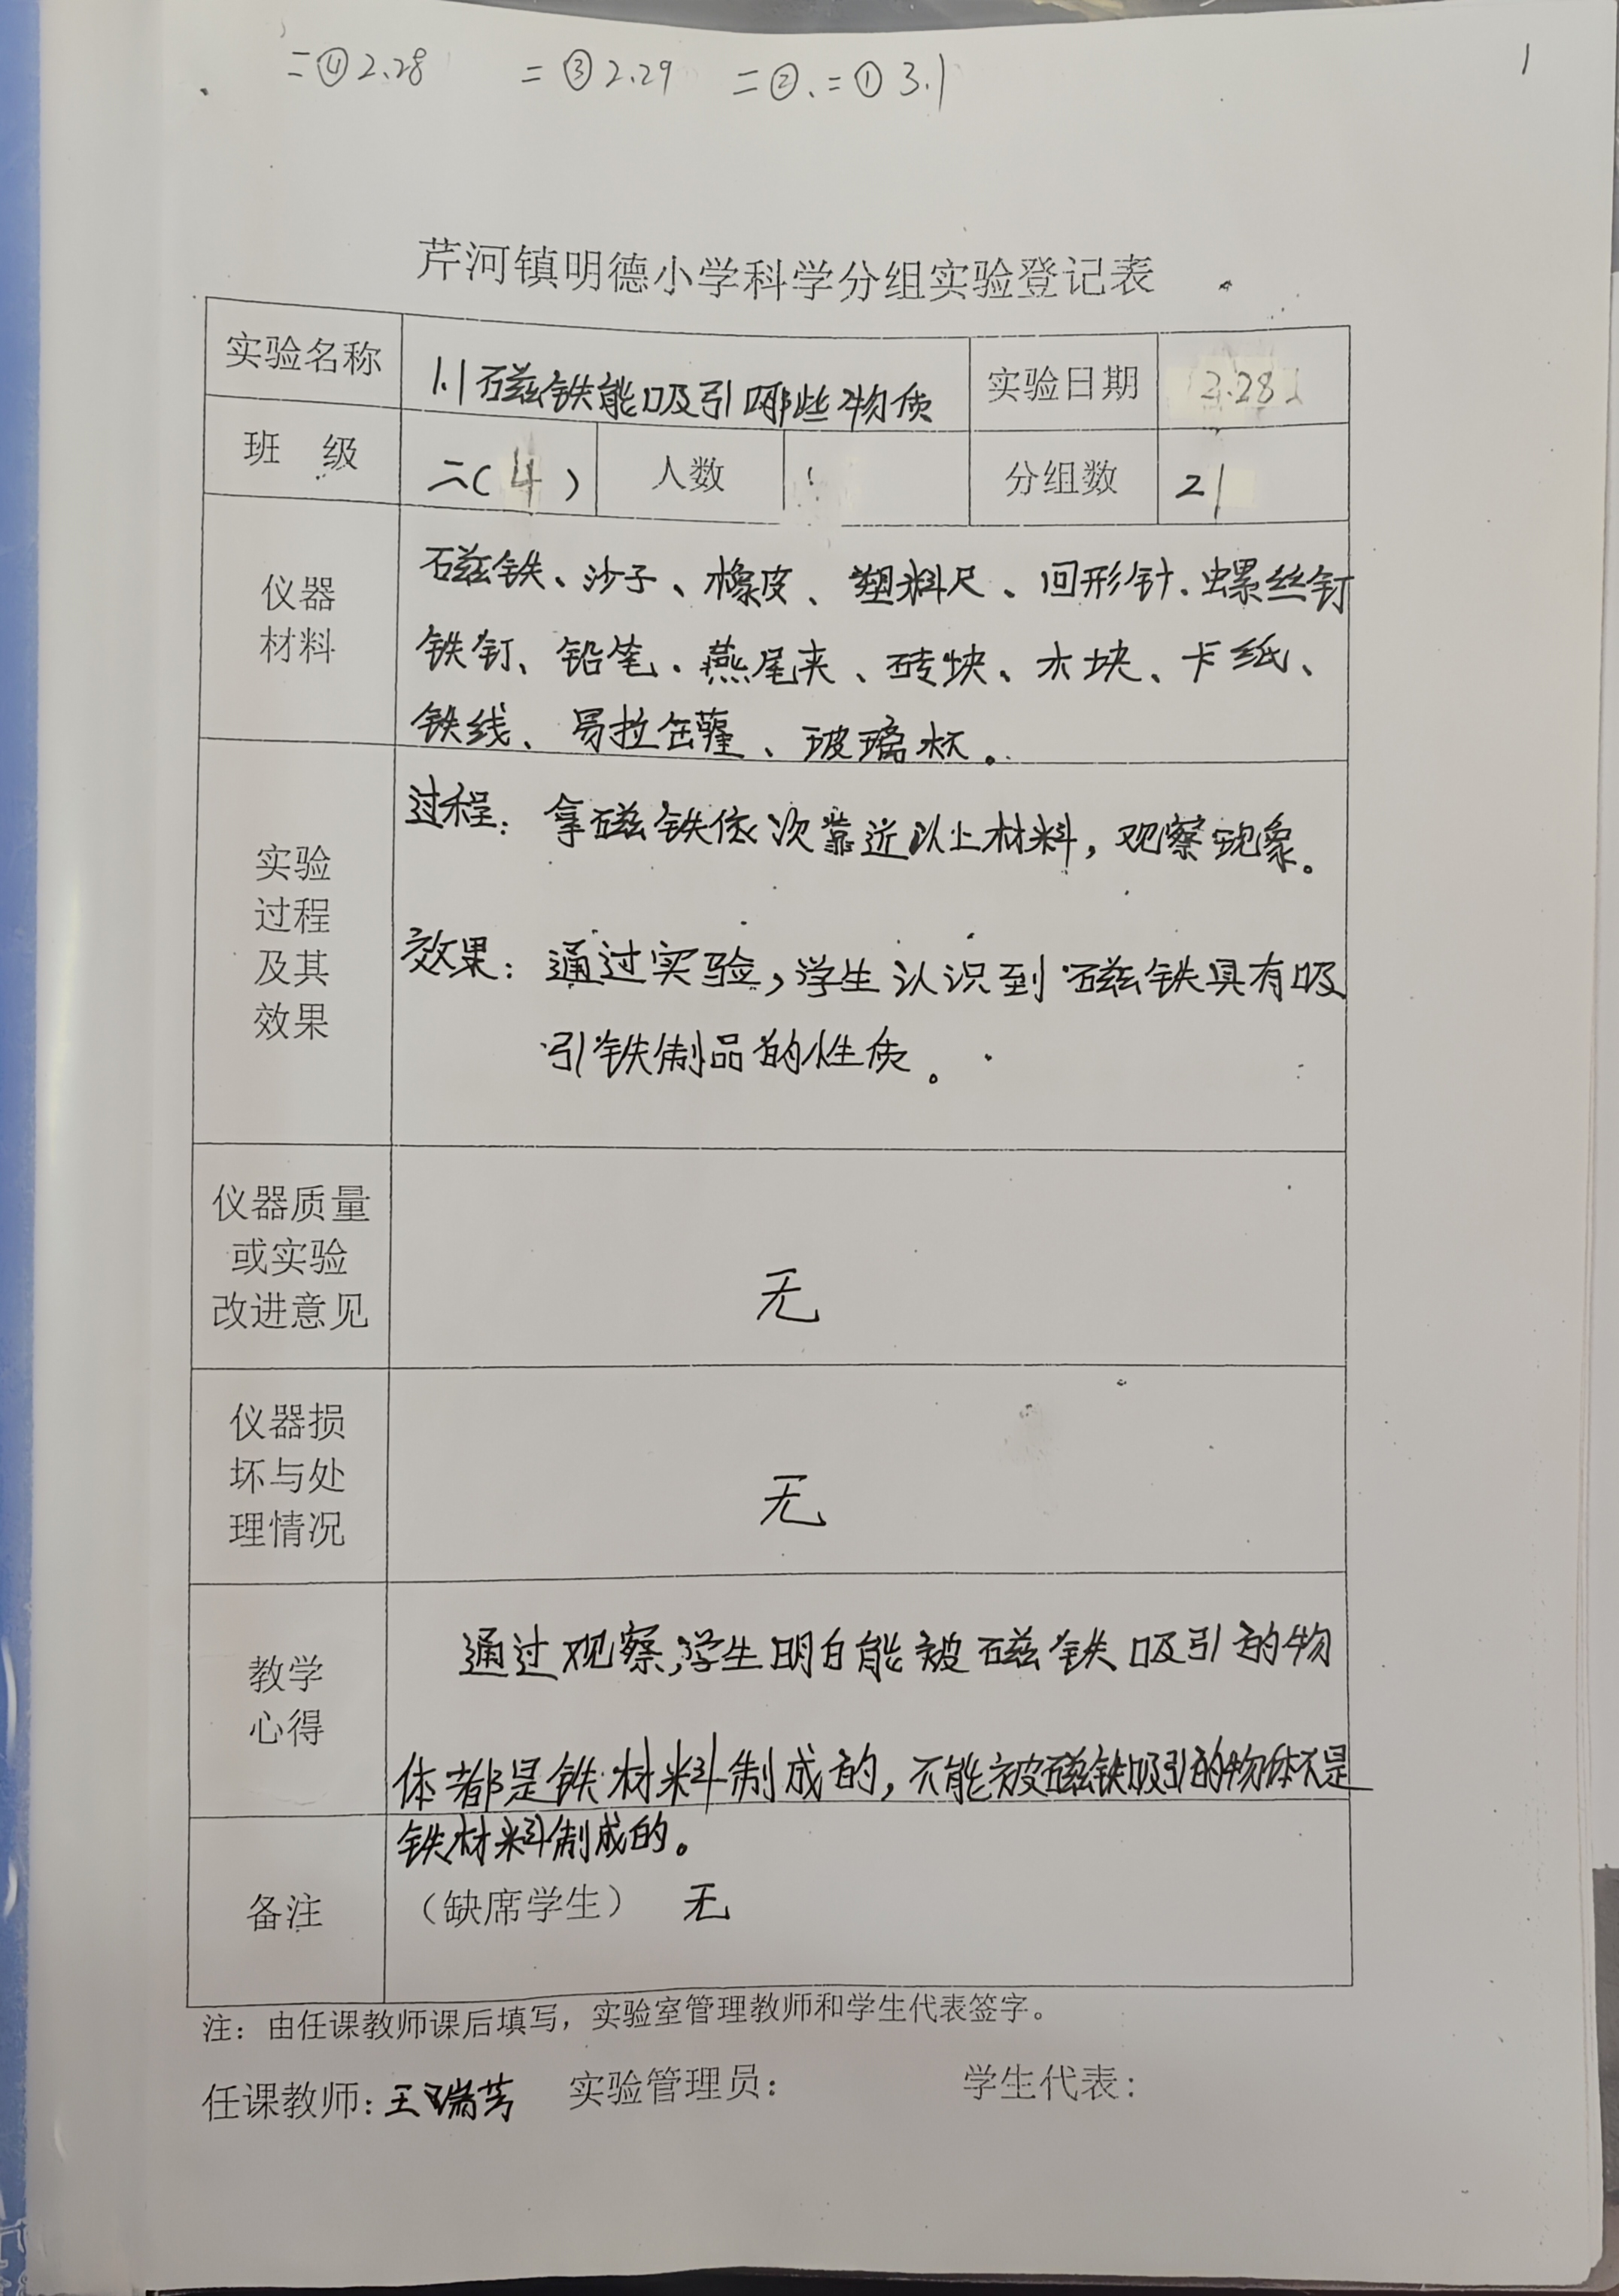 二④2.28 二③2.29 二②、二①3.1
1
芹河镇明德小学科学分组实验登记表
实验名称 1.1磁铁能吸引哪些物质 实验日期 2.28
班 级 二(4) 人数 分组数 21
仪器
材料
磁铁、沙子、橡皮、塑料尺、回形针、螺丝钉
铁钉、铅笔、燕尾夹、砖块、木块、卡纸、
铁线、易拉罐、玻璃杯。
实验
过程
及其
效果
过程：拿磁铁依次靠近以上材料，观察现象。
效果：通过实验，学生认识到磁铁具有吸
引铁制品的性质。
仪器质量
或实验
改进意见
无
仪器损
坏与处
理情况
无
教学
心得
通过观察，学生明白能被磁铁吸引的物
体都是铁材料制成的，不能被磁铁吸引的物体不是
铁材料制成的。
备注
（缺席学生） 无
注：由任课教师课后填写，实验室管理教师和学生代表签字。
任课教师：王瑞芳 实验管理员： 学生代表：